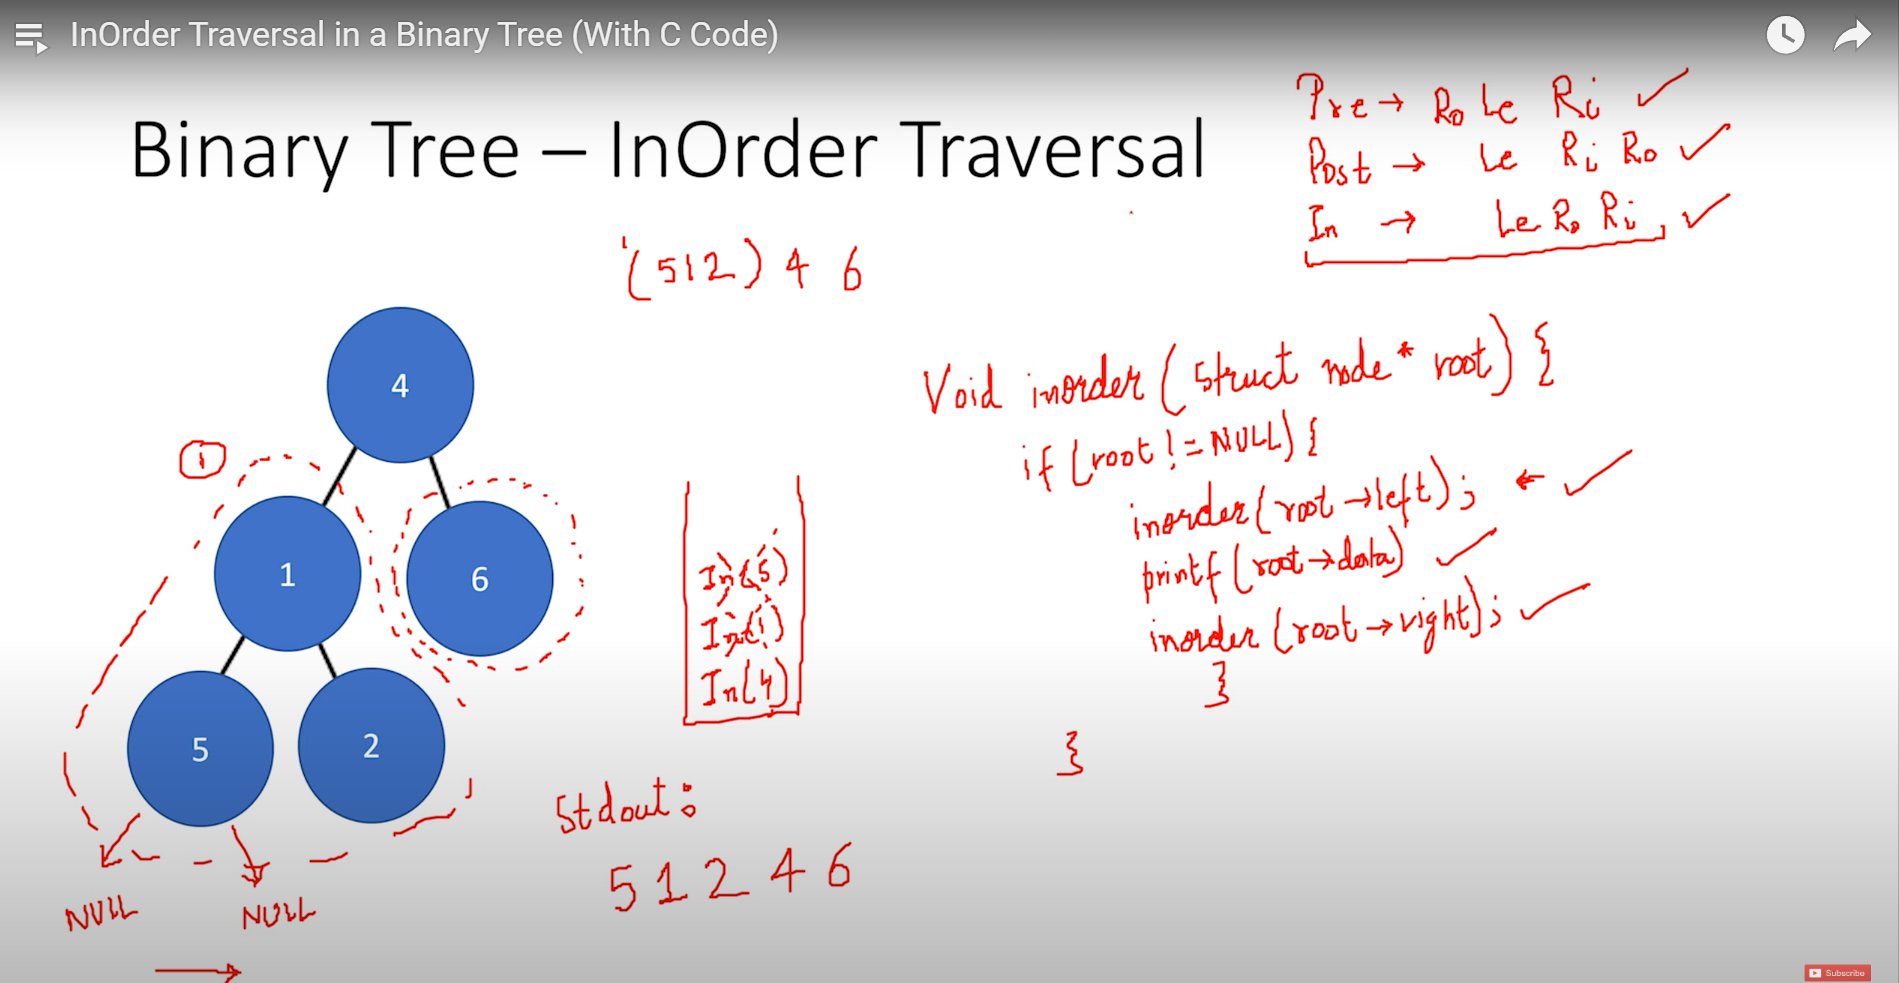 InOrder Traversal in a Binary Tree (With C Code)
Binary Tree – InOrder Traversal
Pre → Ro Le Ri ✓
Post → Le Ri Ro ✓
In → Le Ro Ri ✓
(512) 4 6
4
1
1
6
5
2
NULL
NULL
In(5)
In(1)
In(4)
Stdout:
5 1 2 4 6
Void inorder (struct node* root) {
if (root != NULL) {
inorder (root → left); ← ✓
printf (root → data) ✓
inorder (root → right); ✓
}
}
Subscribe